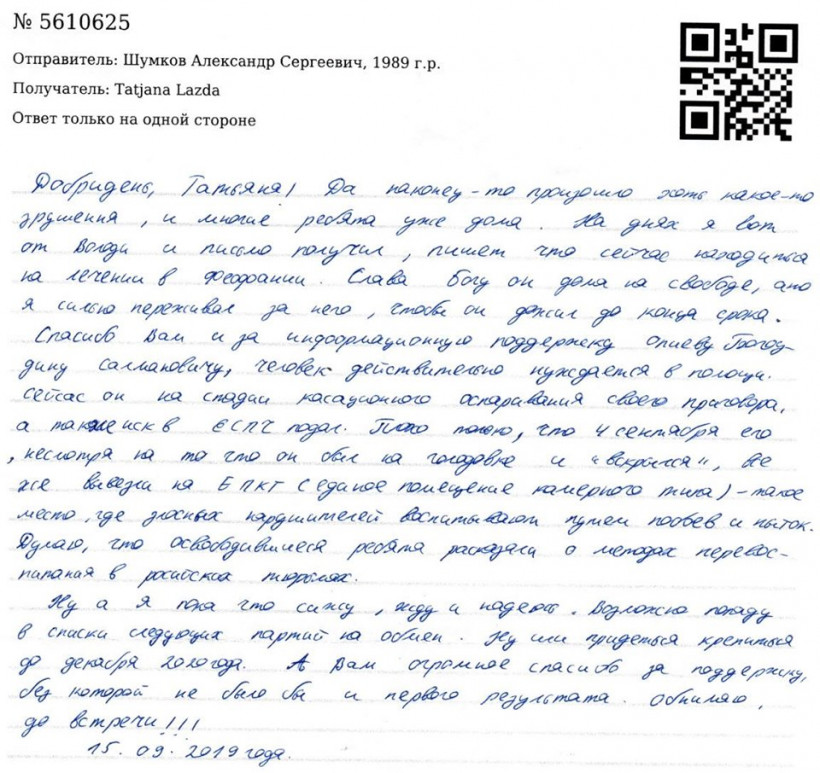 № 5610625
Отправитель: Шумков Александр Сергеевич, 1989 г.р.
Получатель: Tatjana Lazda
Ответ только на одной стороне
Добридень, Татьяна! Да наконец-то произошло хоть какое-то
зрушення, и многие ребята уже дома. На днях я вот
от Володи и письмо получил, пишет что сейчас находиться
на лечении в Феофании. Слава Богу он дома на свободе, а то
я сильно переживал за него, чтобы он дожил до конца срока.
Спасибо Вам и за информационную поддержку Алиеву
Саламановичу, человек действительно нуждается в помощи.
Сейчас он на стадии касационного оспаривания своего приговора,
а также иск в ЕСПЧ подал. Плохо только, что 4 сентября его
, несмотря на то что он был на голодовке и "вскрылся", все
же вывезли на ЕПКТ (единое помещение камерного типа) - такое
место, где злосных нарушителей воспитывают путем побоев и пыток.
Думаю, что освободившиеся ребята расказали о методах перевос-
питания в росийских тюрьмах.
Ну а я пока что сижу, жду и надеюсь. Возможно попаду
в списки следующих партий на обмен. Ну или придеться крепиться
до декабря 2020 года. А Вам огромное спасибо за поддержку,
без которой не было бы и первого результата. Обнимаю,
до встречи!!!
15.09.2019 года.